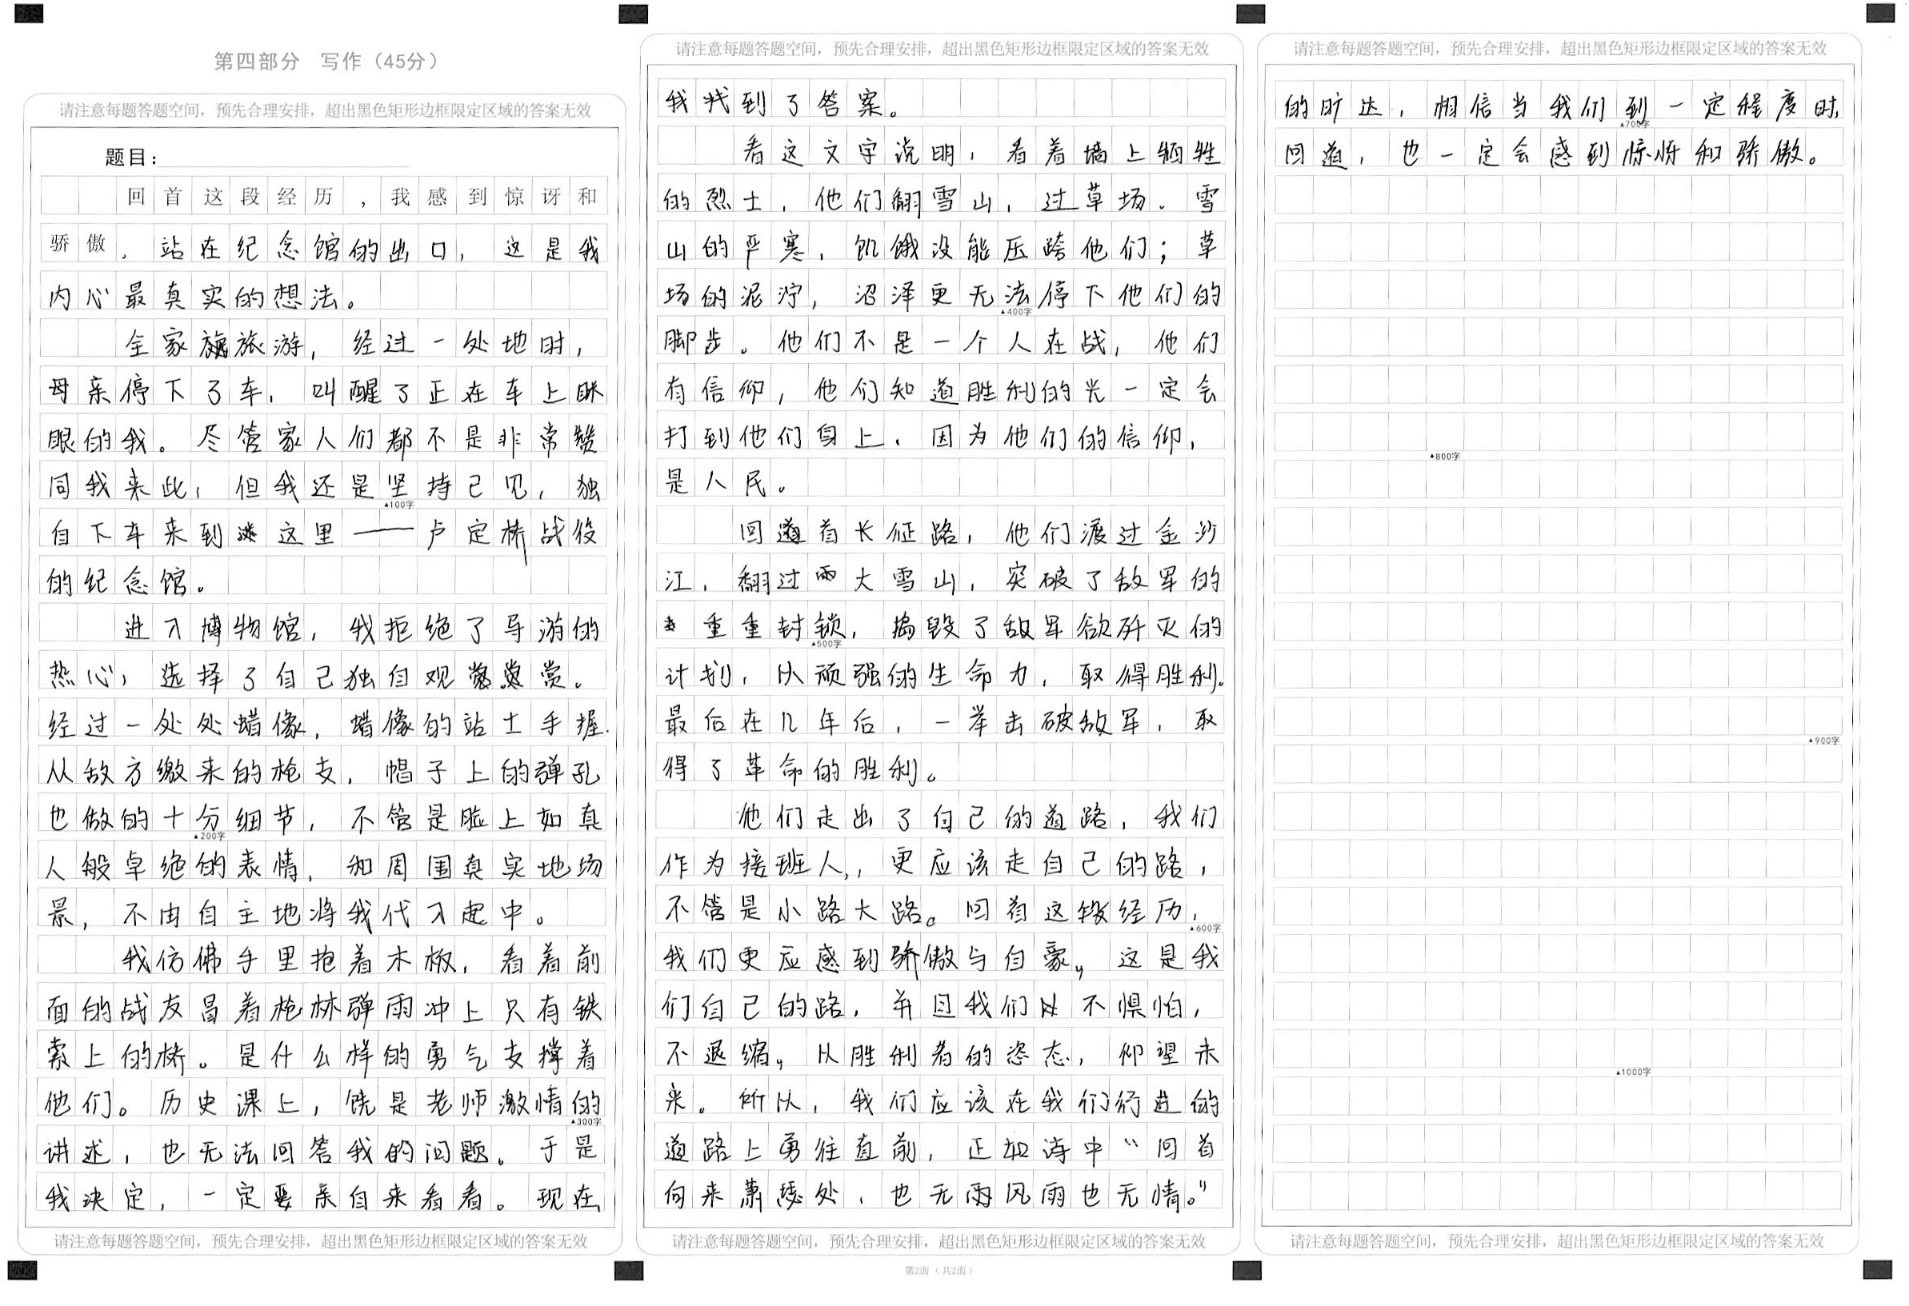 第四部分 写作（45分）
请注意每题答题空间，预先合理安排，超出黑色矩形边框限定区域的答案无效
题目：
回首这段经历，我感到惊讶和
骄傲。站在纪念馆的出口，这是我
内心最真实的想法。
全家旅游，经过一处地时，
母亲停下了车，叫醒了正在车上眯
眼的我。尽管家人们都不是非常赞
同我来此，但我还是坚持己见，独
▲100字
自下车来到这里——卢定桥战役
的纪念馆。
进入博物馆，我拒绝了导游的
热心，选择了自己独自观赏。
经过一处处蜡像，蜡像的站士手握
从敌方缴来的枪支，帽子上的弹孔
也做的十分细节，不管是脸上如真
▲200字
人般卓绝的表情，和周围真实地场
景，不由自主地将我代入起中。
我仿佛手里抱着木板，看着前
面的战友冒着枪林弹雨冲上只有铁
索上的桥。是什么样的勇气支撑着
他们。历史课上，饶是老师激情的
▲300字
讲述，也无法回答我的问题。于是
我决定，一定要亲自来看看。现在，
请注意每题答题空间，预先合理安排，超出黑色矩形边框限定区域的答案无效
请注意每题答题空间，预先合理安排，超出黑色矩形边框限定区域的答案无效
我找到了答案。
看这文字说明，看着墙上牺牲
的烈士，他们翻雪山，过草场。雪
山的严寒，饥饿没能压跨他们；草
场的泥泞，沼泽更无法停下他们的
▲400字
脚步。他们不是一个人在战，他们
有信仰，他们知道胜利的光一定会
打到他们身上，因为他们的信仰，
是人民。
回首长征路，他们渡过金沙
江，翻过大雪山，突破了敌军的
重重封锁，捣毁了敌军欲歼灭的
▲500字
计划，以顽强的生命力，取得胜利。
最后在几年后，一举击破敌军，取
得了革命的胜利。
他们走出了自己的道路，我们
作为接班人，更应该走自己的路，
不管是小路大路。回首这段经历，
▲600字
我们更应感到骄傲与自豪，这是我
们自己的路，并且我们不惧怕，
不退缩，以胜利者的姿态，仰望未
来。所以，我们应该在我们行进的
道路上勇往直前，正如诗中“回首
向来萧瑟处，也无雨风雨也无情。”
请注意每题答题空间，预先合理安排，超出黑色矩形边框限定区域的答案无效
第2面（共2面）
请注意每题答题空间，预先合理安排，超出黑色矩形边框限定区域的答案无效
的旷达，相信当我们到一定程度时，
▲700字
回首，也一定会感到惊讶和骄傲。
▲800字
▲900字
▲1000字
请注意每题答题空间，预先合理安排，超出黑色矩形边框限定区域的答案无效